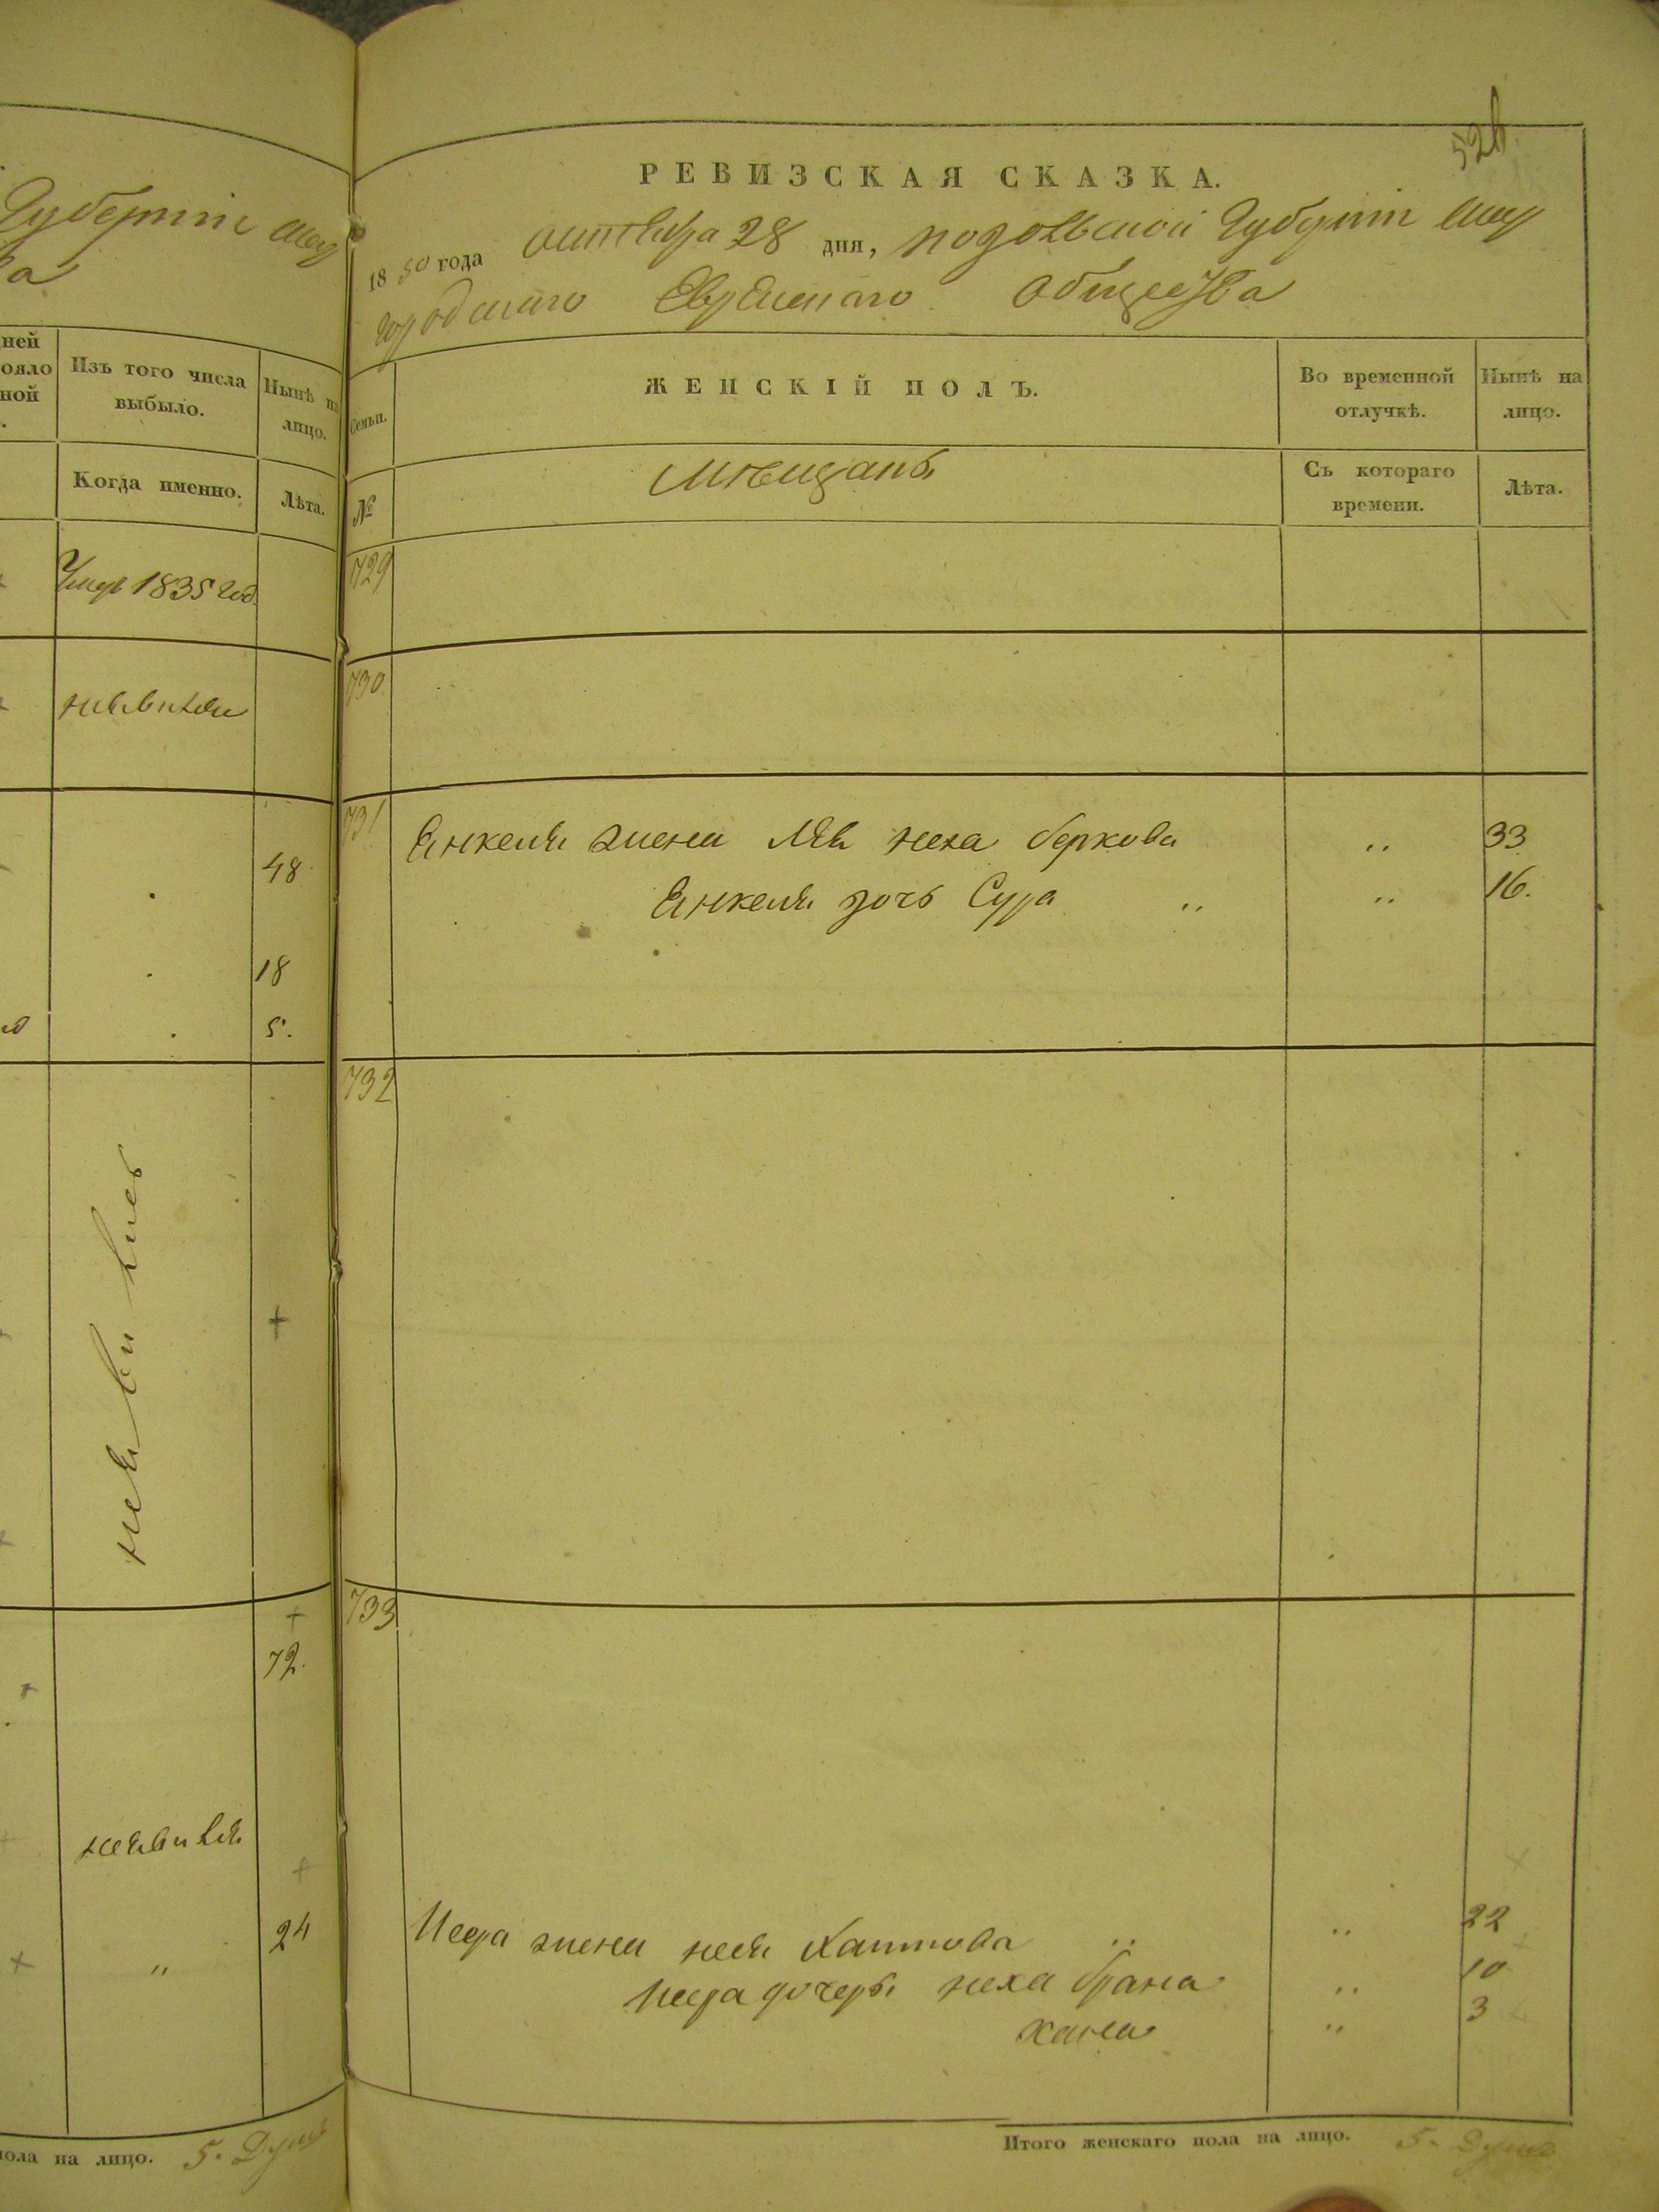 Губерніи Шар
ва
ней
ояло
ной
Изъ того числа
выбыло.
Нынѣ на
лицо.
Когда именно.
Лѣта.
Умеръ 1835 год.
48
18
5.
+
+
72.
неявился
24
пола на лицо. 5. Душъ
526.
РЕВИЗСКАЯ СКАЗКА.
1850 года октября 28 дня, подольской Губерніи Шар
городскаго Еврейскаго Общества
Семьи.
ЖЕНСКІЙ ПОЛЪ.
Во временной
отлучкѣ.
Нынѣ на
лицо.
№
мѣщанѣ
Съ котораго
времени.
Лѣта.
729
730
731 Янкеля жена Лея неха беркова " 33
Янкеля дочь Сура " " 16.
732
733
жена Хаимова " " 22
дочери неха брана " 10
хана " 3
Итого женскаго пола на лицо. 5. Душъ